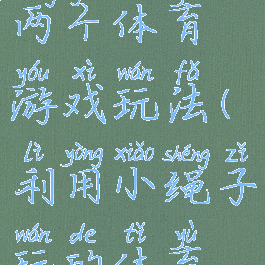 两个体育
yóu xì wán fǎ
游戏玩法(
lì yòng xiǎo shéng zǐ
利用小绳子
wán de tǐ yù
玩的体育